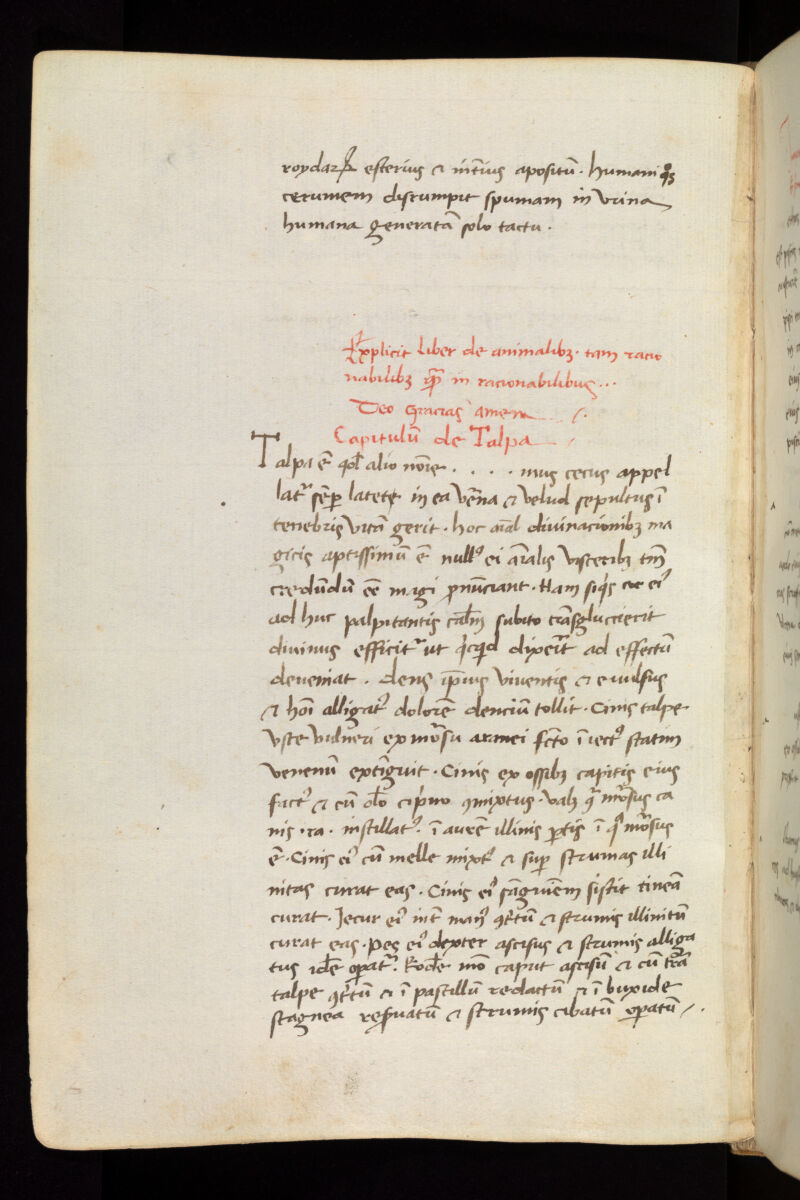 roydarꝝ esterius ⁊ int̃ius apositũ · humani qꝫ
cerumem disrumpit spumam in vrina
humana generatã solo tactu ·
Explicit liber de animalibꝫ · tam racio
nabilibꝫ qᷓ in racionabilibus...
Deo gracias amen
Capitulũ de Talpa
Talpa ẽ qđ alio noı̃e . . . . mus cecus appel
lat᷑ sẽp latete in ea vẽna ⁊ velud sepultus ĩ
tenebris vitã gerit · hoc aı̃al diuinacionibꝫ ma
gicis aptissimũ ẽ nullꝰ ei aı̃alis visceribꝫ tm̃
credũdũ eẽ magi ꝓnũciant · Nam siq̃s cor eiꝰ
ad huc palpitantis subito trãsgluccierit
diuinus efficit᷑ ut qͥcqͥd dixerĩt ad effectũ
deueniat . dens ip̃ius viuentis ⁊ euulsus
⁊ hoı̃ alligatꝰ dolorẽ dencium tollit · Cinis talpe
vste vulneri ex morsu aranei fc̃to ĩiectꝰ statim
venenũ extĩguit · Cinis ex ossibꝫ capitis eius
factꝰ ⁊ cũ ol̃o cipͥno ꝯmixtus · valꝫ morsus ca
nis · instillatꝰ ĩ aurẽ illinis ꝑtis ĩ qͣ morsus
ẽ · Cinis eiꝰ cũ melle mixtꝰ ⁊ suꝑ strumas illi
nitas curat eas · Cinis eiꝰ sãguinẽm sistit tineã
curat · Iecur eiꝰ int̃ manꝰ ꝯt̃tũ ⁊ strumis illinitũ
curat eas · pes eiꝰ dexter ascisus ⁊ strumis alliga
tus idẽ oꝑat᷑ · Eodẽ mõ caput ascisũ ⁊ cũ t̃ra
talpe ꝯt̃tũ ⁊ ĩ pastillũ redactũ ⁊ ĩ buxide
stagnea reẜuatũ ⁊ strumis cibatũ oꝑatũ